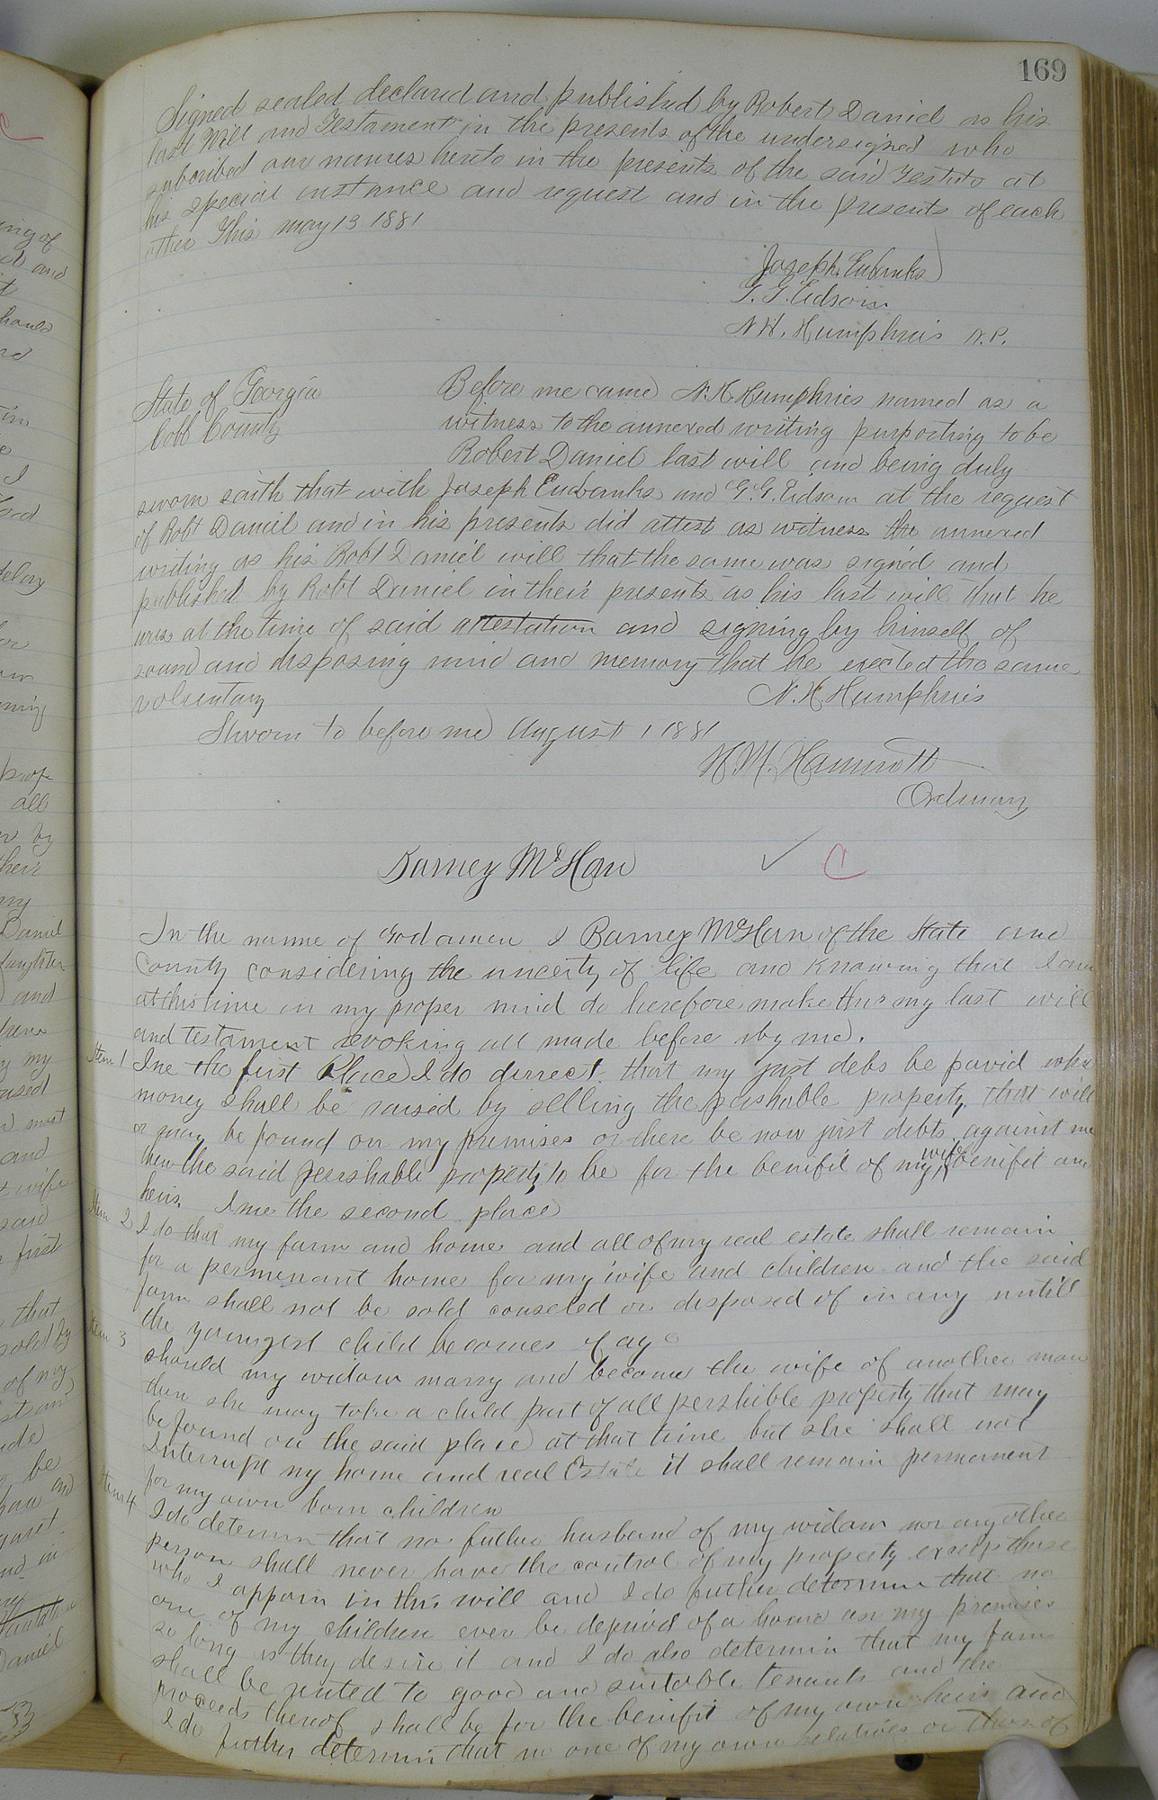 169
Signed sealed declared and published by Robert Daniel as his
last Will and Testament in the presents of the undersigned who
subcribed our names hereto in the presents of the said Testato at
his special instance and request and in the presents of each
other This may 13 1881
Joseph Eubanks
G. G. Eidson
N. H. Humphries N. P.
State of Georgia
Cobb County
Before me came N. H. Humphries named as a
witness to the annexed writing purporting to be
Robert Daniel last will and being duly
sworn saith that with Joseph Eubanks and G. G. Eidson at the request
of Robt Daniel and in his presents did attest as witness the annexed
writing as his Robt Daniel will that the same was signed and
published by Robt Daniel in their presents as his last will that he
was at the time of said attestation and signing by himself of
sound and disposing mind and memory that he exected the same
volentary
N. H. Humphries
Sworn to before me August 1 1881
H. M. Hammett
Ordinary
Barney McHan
C
In the name of God amen I Barney McHan of the State and
County considering the uncerty of life and Knowing that I am
at this time in my proper mind do herefore make this my last will
and testament revoking all made before by me.
Item 1 Ine the first Place I do dirrect that my just debs be pavid when
money shall be raised by selling the pershable property that will
or may be found on my premises or there be now just debts against me
then the said perishable property to be for the benifit of my wife benifit and
heirs. Ine the second place
Item 2 I do that my farm and home and all of my real estate shall remain
for a permenant home for my wife and children and the said
farm shall not be sold conseled or disposed of in any untill
the youngest child becomes of age
Item 3 should my widow marry and become the wife of another man
then she may take a child part of all pershible property that may
be found on the said place at that time but she shall not
Interrupt my home and real Estate it shall remain permement
for my own born children
Item 4 I do determin that no futher husband of my widow nor any other
person shall never have the control of my property except those
who I appoin in this will and I do futher determin that no
one of my children ever be deprivd of a home on my premises
so long as they desire it and I do also determin that my farm
shall be rented to good and suitable tenants and the
proceeds thereof shall be for the benifit of my own heirs and
I do further determin that no one of my own relatives or those of